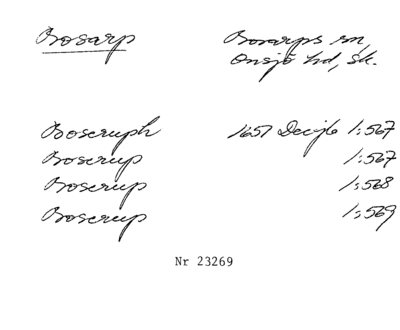 Bosarp Bosarps sn,
Onsjö hd, Sk.
Boseruph 1651 Decijb 1:567
Boserup 1:567
Boserup 1:568
Boserup 1:569
Nr 23269